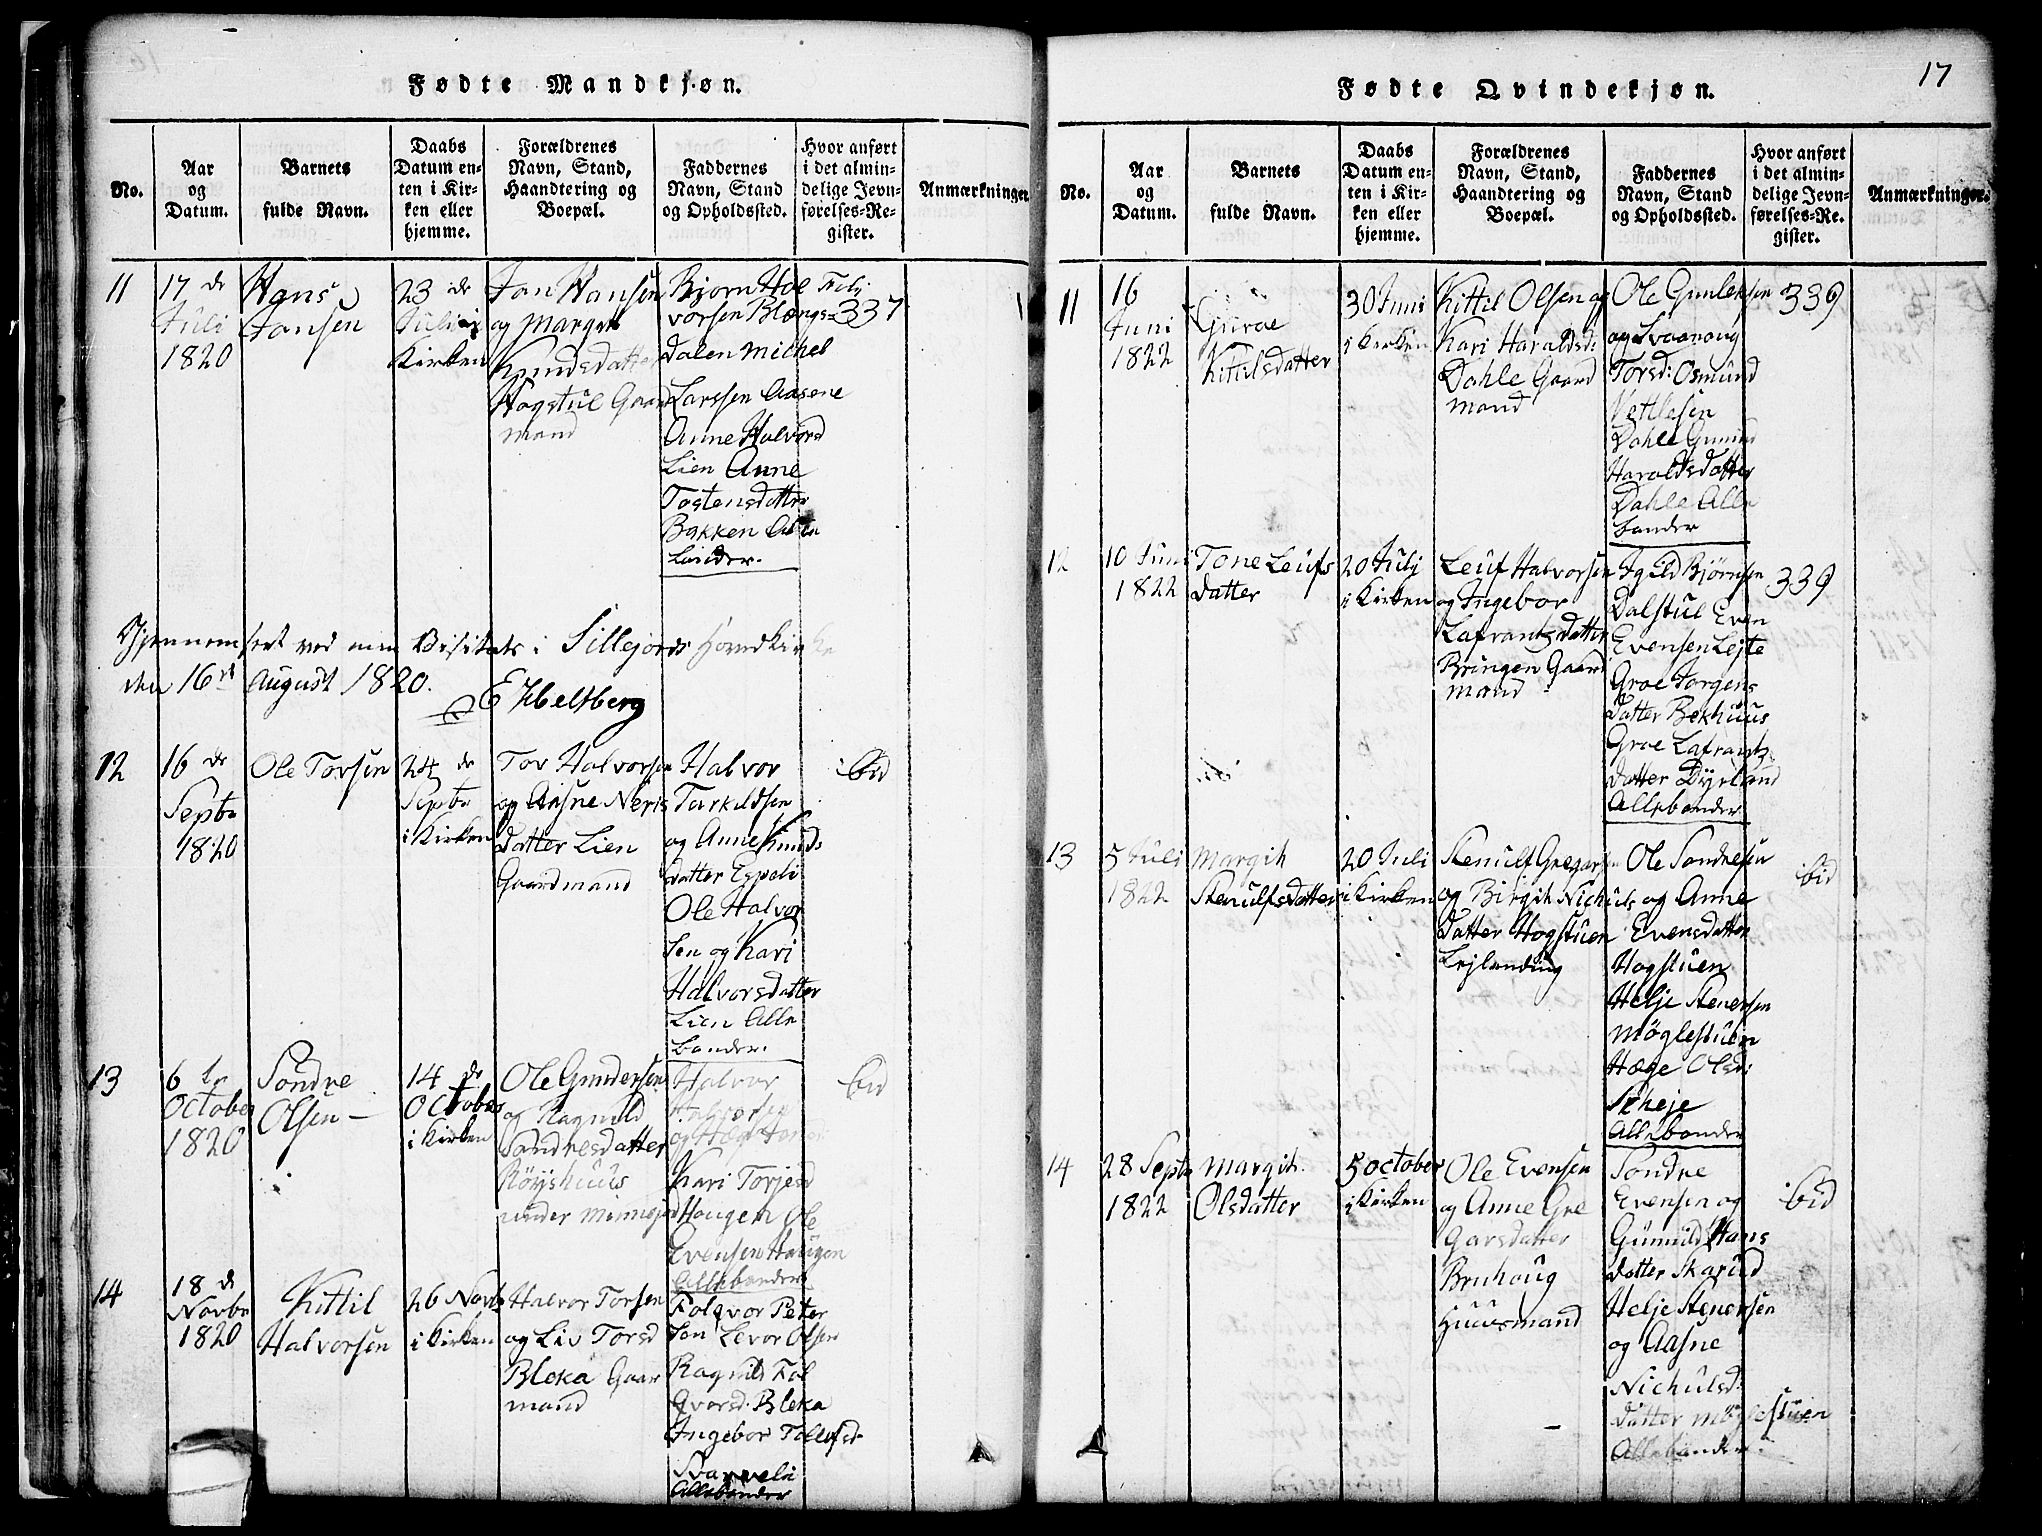 Fødte Mandkjøn.
No.
Aar
og
Datum.
Barnets
fulde Navn.
Daabs
Datum en-
ten i Kir-
ken eller
hjemme.
Forældrenes
Navn, Stand,
Haandtering og
Boepæl.
Faddernes
Navn, Stand
og Opholdssted.
Hvor anført
i det almin-
delige Jevn-
førelses-Re-
gister.
Anmærkninger
11
17 de
Juli
1820
Hans
Jansen
23 de
Juli i
Kirken
Jan Hansen
og Margit
Knudsdatter
Hogstul Gaard
mand
Bjørn Hol
vorsen Blengs-
dalen Michel
Larssen Aasene
Anne Halvorsd
Lien Anne
Tostensdatter
Bakken Alle
bønder.
Foli
337
Gjennemseet ved min Visitats i Sillejords Hovedkirke
den 16de August 1820.
12
16 de
Septbr
1820
Ole Torsen
24 de
Septbr
i Kirken
Tov Halvorsen
og Aasne Neris
datter Lien
Gaardmand
Halvor
Tarkildsen
og Anne Knuds
datter Espeli
Ole Halvor
sen og Kari
Halvorsdatter
Lien Alle
bønder.
ibid
13
6 te
October
1820
Sondre
Olsen
14 de
October
i Kirken
Ole Gundersen
og Ragnild
Sondresdatter
Röyshuus
under
Halvor
Halvorsen
og
Kari Torjesd
Haugen Ole
Evensen Haugen
Allebønder
ibid
14
18 de
Novbr
1820
Kittil
Halvorsen
26 Novb
i Kirken
Halvor Torsen
og Liv Torsd
Bleka Gaar
mand
Folqvor Peter
sen Levor Olsen
Ragnild Fol
qvorsd. Bleka
Ingebor Tollefsd
Svarveli
Allebønder
17
Fødte Qvindekjøn.
No.
Aar
og
Datum.
Barnets
fulde Navn.
Daabs
Datum en-
ten i Kir-
ken eller
hjemme.
Forældrenes
Navn, Stand,
Haandtering og
Boepæl.
Faddernes
Navn, Stand
og Opholdssted.
Hvor anført
i det almin-
delige Jevn-
førelses-Re-
gister.
Anmærkninger.
11
16
Juni
1822
Guroe
Kittilsdatter
30 Juni
i Kirken
Kittil Olsen og
Kari Haraldsd:
Dahle Gaard
mand
Ole Gunleksen
og Svaanaug
Torsd: Osmund
Vetllesen
Dahle Gunild
Haroldsdatter
Dahle Alle
bønder
339
12
10 Juni
1822
Tone Leufs
datter
20 Juli
i Kirken
Leuf Halvorsen
og Ingebor
Lafrantzdatter
Bringen Gaard
mand
Igild Bjørnsen
Dalstul Even
Evensen Lejte
Groe Jorgens
datter Bekhuus
Groe Lafrantz
datter Dyrland
Allebønder
339
13
5 Juli
1822
Margit
Stenulfsdatter
20 Juli
i Kirken
Stenulf Gregarsen
og Birgit Nichuls
datter Hogstuen
Lejlending
Ole Sondresen
og Anne
Evensdatter
Hogstuen
Helje Stenersen
Möglestuen
Hæge Olsd:
Skeje
Allebønder
ibid
14
28 Septbr
1822
Margit
Olsdatter
5 October
i Kirken
Ole Evensen
og Anne Gre
garsdatter
Bruhaug
Huusmand
Sondre
Evensen og
Gunnild Hans
datter Skarud
Helje Stenersen
og Aasne
Nichulsd:
datter Möglestuen
Allebønder.
ibid